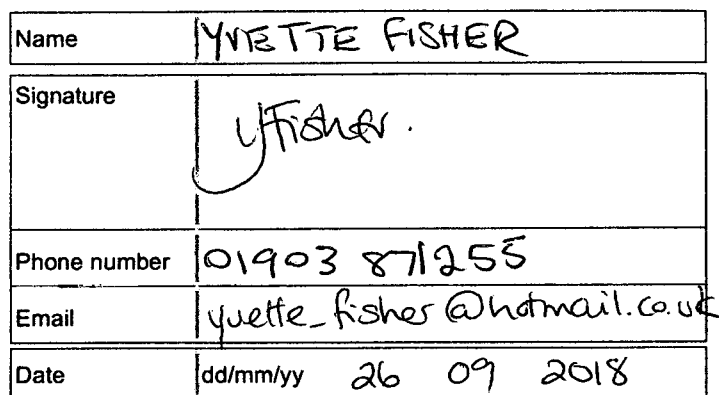 Name YVETTE FISHER
Signature YFisher.
Phone number 01903 871255
Email yvette_fisher@hotmail.co.uk
Date dd/mm/yy 26 09 2018